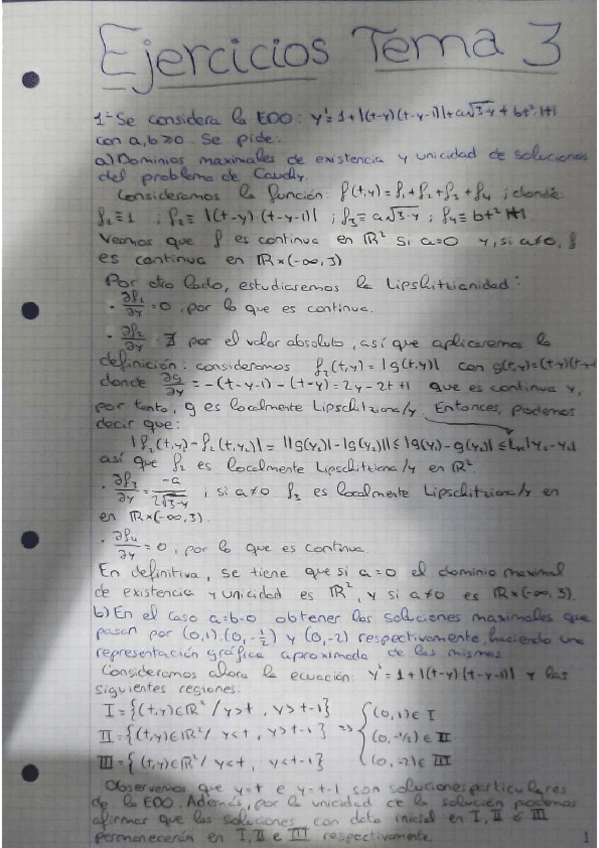 Ejercicios Tema 3
1- Se considera la EDO: y'=1+|(t-y)(t-y-1)|+a√3-y+bt²
con a,b≥0. Se pide:
a) Dominios maximales de existencia y unicidad de soluciones
del problema de Cauchy.
Consideramos la función: f(t,y)=f₁+f₂+f₃+f₄ ; donde:
f₁≡1 ; f₂≡|(t-y)·(t-y-1)| ; f₃≡a√3-y ; f₄≡bt²
Veamos que f es continua en ℝ² si a=0 y, si a≠0, f
es continua en ℝ×(-∞,3)
Por otro lado, estudiaremos la Lipschitzianidad:
· ∂f₁/∂y=0, por lo que es continua.
· ∂f₂/∂y ∄ por el valor absoluto, así que aplicaremos la
definición: consideramos f₂(t,y)=|g(t,y)| con g(t,y)=(t-y)(t-y-
donde ∂g/∂y=-(t-y-1)-(t-y)=2y-2t+1 que es continua y,
por tanto, g es localmente Lipschitziana/y. Entonces, podemos
decir que:
|f₂(t,y₁)-f₂(t,y₂)|=||g(y₁)|-|g(y₂)||≤|g(y₁)-g(y₂)|≤L|y₁-y₂|
así que f₂ es localmente Lipschitziana/y en ℝ².
· ∂f₃/∂y=-a/2√3-y ; si a≠0 f₃ es localmente Lipschitziana/y en
en ℝ×(-∞,3).
· ∂f₄/∂y=0, por lo que es continua.
En definitiva, se tiene que si a=0 el dominio maximal
de existencia y unicidad es ℝ², y si a≠0 es ℝ×(-∞,3).
b) En el caso a=b=0 obtener las soluciones maximales que
pasan por (0,1),(0,-1/2) y (0,-2) respectivamente, haciendo una
representación gráfica aproximada de las mismas.
Consideramos ahora la ecuación: y'=1+|(t-y)(t-y-1)| y las
siguientes regiones:
I={(t,y)∈ℝ²/y>t , y>t-1}
II={(t,y)∈ℝ²/ y<t , y>t-1} ⇒ {(0,1)∈I (0,-1/2)∈II (0,-2)∈III
III={(t,y)∈ℝ²/ y<t , y<t-1}
Observemos que y=t e y=t-1 son soluciones particulares
de la EDO. Además, por la unicidad de la solución podemos
afirmar que las soluciones con dato inicial en I, II e III
permanecerán en I, II e III respectivamente.
1